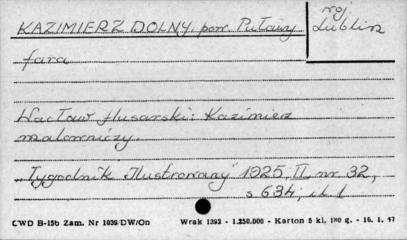 KAZIMIERZ DOLNY, pow. Puławy
woj.
Lublin
fara
Wacław Husarski: Kazimierz
malowniczy.
"Tygodnik Ilustrowany" 1925, II, nr 32,
s 634, il. 1
CWD B-15b Zam. Nr 1039/DW/On Wrak 1392 - 1.250.000 - Karton 5 kl. 180 g. - 16. 1. 47